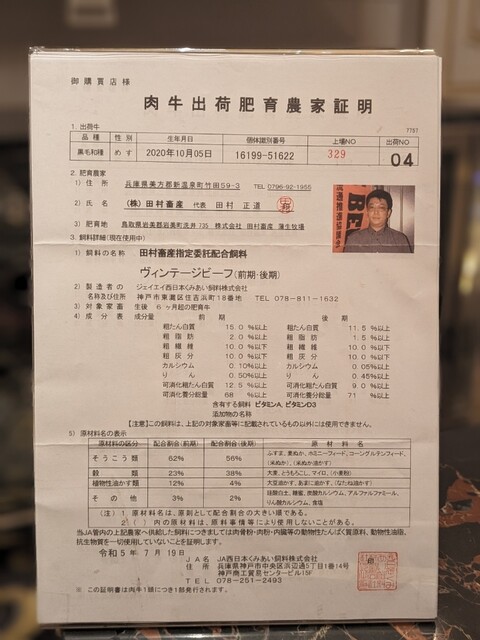 御購買店様
肉牛出荷肥育農家証明
7797
1. 出荷牛
品種 性別 生年月日 個体識別番号 上場NO 出荷NO
黒毛和種 めす 2020年10月05日 16199-51622 329 04
2. 肥育農家
1) 住所 兵庫県美方郡新温泉町竹田59-3 TEL 0796-92-1955
2) 氏名 (株) 田村畜産 代表 田村 正道
3) 肥育地 鳥取県岩美郡岩美町洗井735 株式会社 田村畜産 蒲生牧場
3. 飼料詳細(現在使用中)
1) 飼料の名称 田村畜産指定委託配合飼料
ヴィンテージビーフ(前期・後期)
2) 製造者の ジェイエイ西日本くみあい飼料株式会社
名称及び住所 神戸市東灘区住吉浜町18番地 TEL 078-811-1632
3) 対象家畜 生後6ヶ月超の肥育牛
4) 成分表 成分量 前期 後期
粗たん白質 15.0%以上 粗たん白質 11.5%以上
粗脂肪 2.0%以上 粗脂肪 1.5%以上
粗繊維 10.0%以下 粗繊維 10.0%以下
粗灰分 10.0%以下 粗灰分 10.0%以下
カルシウム 0.10%以上 カルシウム 0.05%以上
りん 0.50%以上 りん 0.45%以上
可消化粗たん白質 12.5%以上 可消化粗たん白質 9.0%以上
可消化養分総量 68%以上 可消化養分総量 71%以上
含有する飼料 ビタミンA, ビタミンD3
添加物の名称
【注意】この飼料は、上記の対象家畜等に記載されているもの以外には使用できません。
5) 原材料名の表示
原材料の区分 配合割合(前期) 配合割合(後期) 原材料名
そうこう類 62% 56% ふすま、麦ぬか、ホミニーフィード、コーングルテンフィード、(米ぬか)、(米ぬか油かす)
穀類 23% 38% 大麦、とうもろこし、マイロ、(小麦粉)
植物性油かす類 12% 4% 大豆油かす、あまに油かす、(なたね油かす)
その他 3% 2% 珪酸白土、糖蜜、炭酸カルシウム、アルファルファミール、りん酸カルシウム、食塩
(注) 1. 原材料名は、原則として配合割合の大きい順である。
2. ( )内の原材料は、原料事情等により使用しないことがある。
当JA管内の上記農家へ供給した飼料につきましては肉骨粉・肉粉・内臓等の動物性たんぱく質原料、動物性油脂、
抗生物質を一切使用していないことを証明します。
令和5年7月19日
JA名 JA西日本くみあい飼料株式会社
住所 兵庫県神戸市中央区浜辺通5丁目1番14号
神戸商工貿易センタービル15F
TEL 078-251-2493
※ この証明書は肉牛1頭につき1部発行されます。